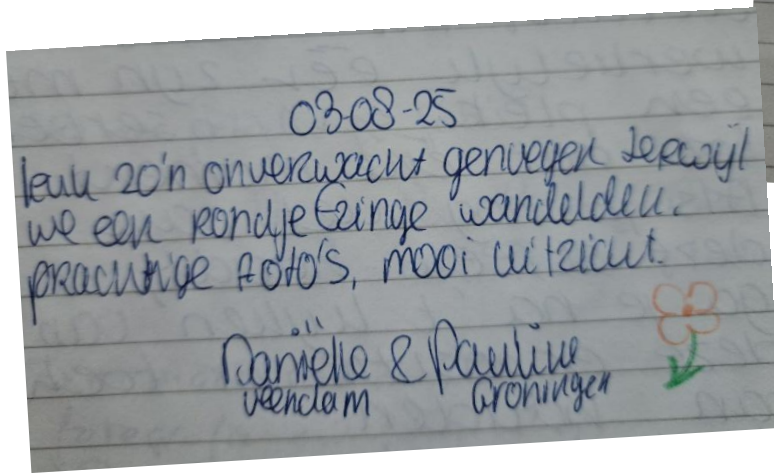 03-08-25
leuk zo'n onverwacht genoegen terwijl
we een rondje Ezinge wandelden.
prachtige foto's, mooi uitzicht.
Daniëlle & Pauline
Veendam Groningen